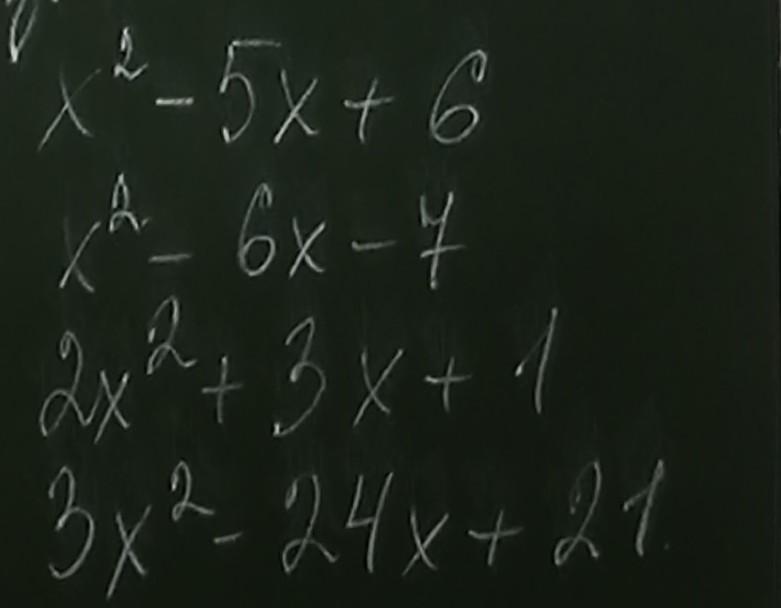 x² - 5x + 6
x² - 6x - 7
2x² + 3x + 1
3x² - 24x + 21